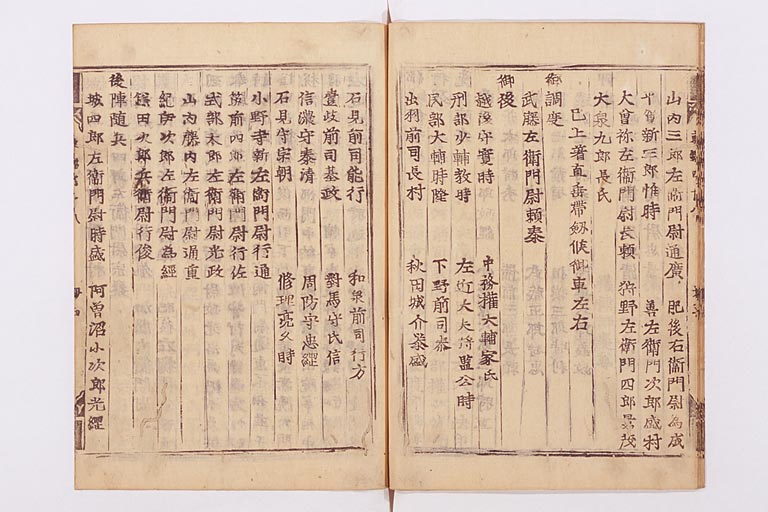 山内三郎左衞門尉通廣 肥後右衞門尉為成
新三郎惟時 善左衞門次郎盛村
大曽祢左衞門尉長頼 狩野左衞門四郎景茂
大泉九郎長氏
已上著直垂帶劔候御車左右
御調度
武藤左衞門尉頼泰
御後
越後守實時 中務權大輔家氏
刑部少輔教時 左近大夫將監公時
民部大輔時隆 下野前司泰
出羽前司長村 秋田城介泰盛
石見前司能行 和泉前司行方
壹岐前司基政 對馬守氏信
信濃守泰清 周防守忠經
石見守宗朝 修理亮久時
小野寺新左衞門尉行通
筑前四郎左衞門尉行佐
武部太郎左衞門尉光政
山内藤内左衞門尉通重
紀伊次郎左衞門尉為經
鎌田次郎兵衞尉行俊
後陣隨兵
城四郎左衞門尉時盛 阿曽沼小次郎光經